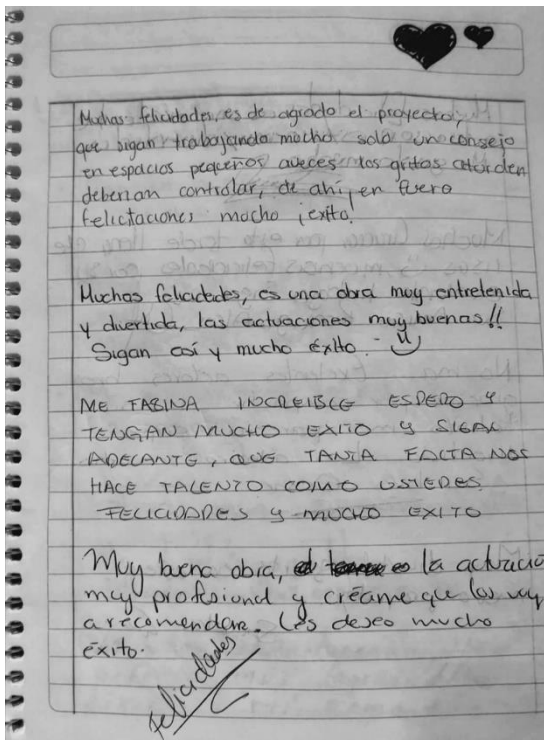 Muchas felicidades, es de agrado el proyecto,
que sigan trabajando mucho solo un consejo
en espacios pequeños aveces los gritos aturden
deberian controlar, de ahi en fuera
felicitaciones mucho ¡exito!
Muchas felicidades, es una obra muy entretenida
y divertida, las actuaciones muy buenas!!
Sigan así y mucho éxito :-)
ME INCREIBLE ESPERO Y
TENGAN MUCHO EXITO Y SIGAN
ADELANTE, QUE TANTA FALTA NOS
HACE TALENTO COMO USTEDES
FELICIDADES Y MUCHO EXITO
Muy buena obra, la actuació
muy profesional y créame que los voy
a recomendare. Les deseo mucho
éxito.
Felicidades